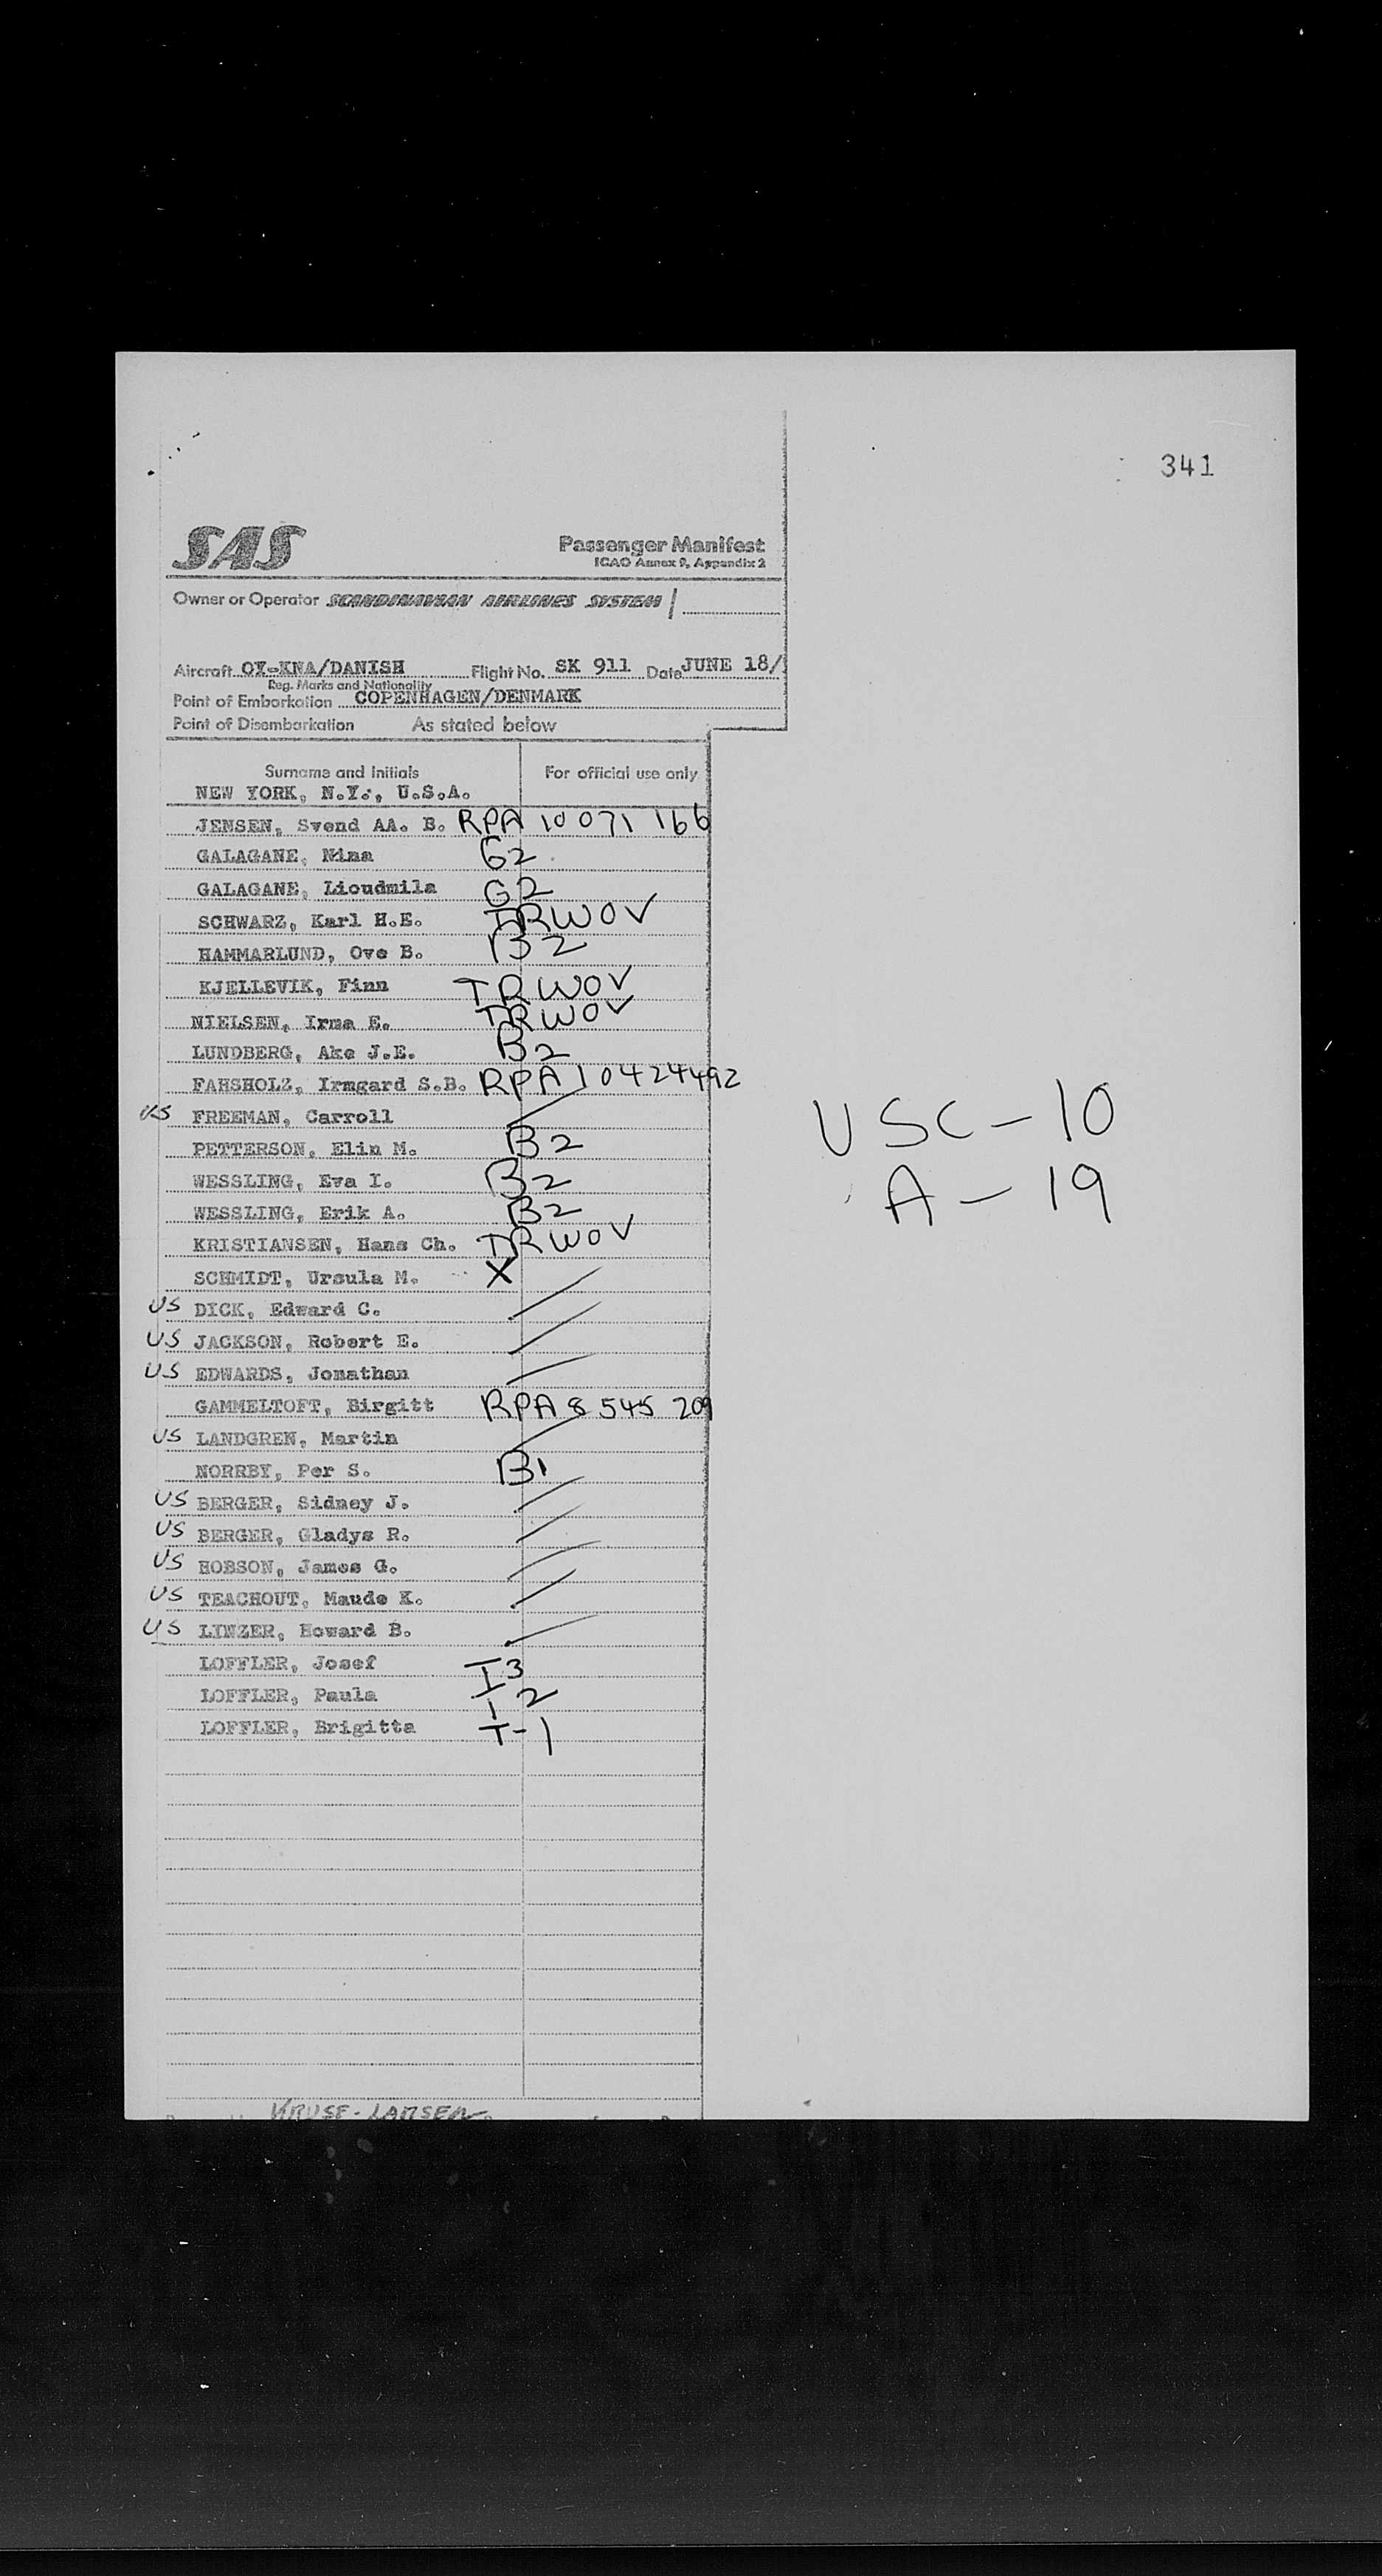 341
SAS
Passenger Manifest
ICAO Annex 9, Appendix 2
Owner or Operator SCANDINAVIAN AIRLINES SYSTEM
Aircraft OY-KNA/DANISH Flight No. SK 911 Date JUNE 18/
Reg. Marks and Nationality
Point of Embarkation COPENHAGEN/DENMARK
Point of Disembarkation As stated below
Surname and Initials For official use only
NEW YORK, N.Y., U.S.A.
JENSEN, Svend AA. B. RPA 10 071 166
GALAGANE, Nina G2
GALAGANE, Lioudmila G2
SCHWARZ, Karl H.E. TRWOV
HAMMARLUND, Ove B. B2
KJELLEVIK, Finn TRWOV
NIELSEN, Irma E. TRWOV
LUNDBERG, Ake J.E. B2
FAHSHOLZ, Irmgard S.B. RPA 10424492
US FREEMAN, Carroll
PETTERSON, Elin M. B2
WESSLING, Eva I. B2
WESSLING, Erik A. B2
KRISTIANSEN, Hans Ch. TRWOV
SCHMIDT, Ursula M. X
US DICK, Edward C.
US JACKSON, Robert E.
US EDWARDS, Jonathan
GAMMELTOFT, Birgitt RPA 8 545 209
US LANDGREN, Martin
NORRBY, Per S. B1
US BERGER, Sidney J.
US BERGER, Gladys R.
US HOBSON, James G.
US TEACHOUT, Maude K.
US LINZER, Howard B.
LOFFLER, Josef I3
LOFFLER, Paula I2
LOFFLER, Brigitta I-1
USC-10
A-19
KRUSE-LARSEN